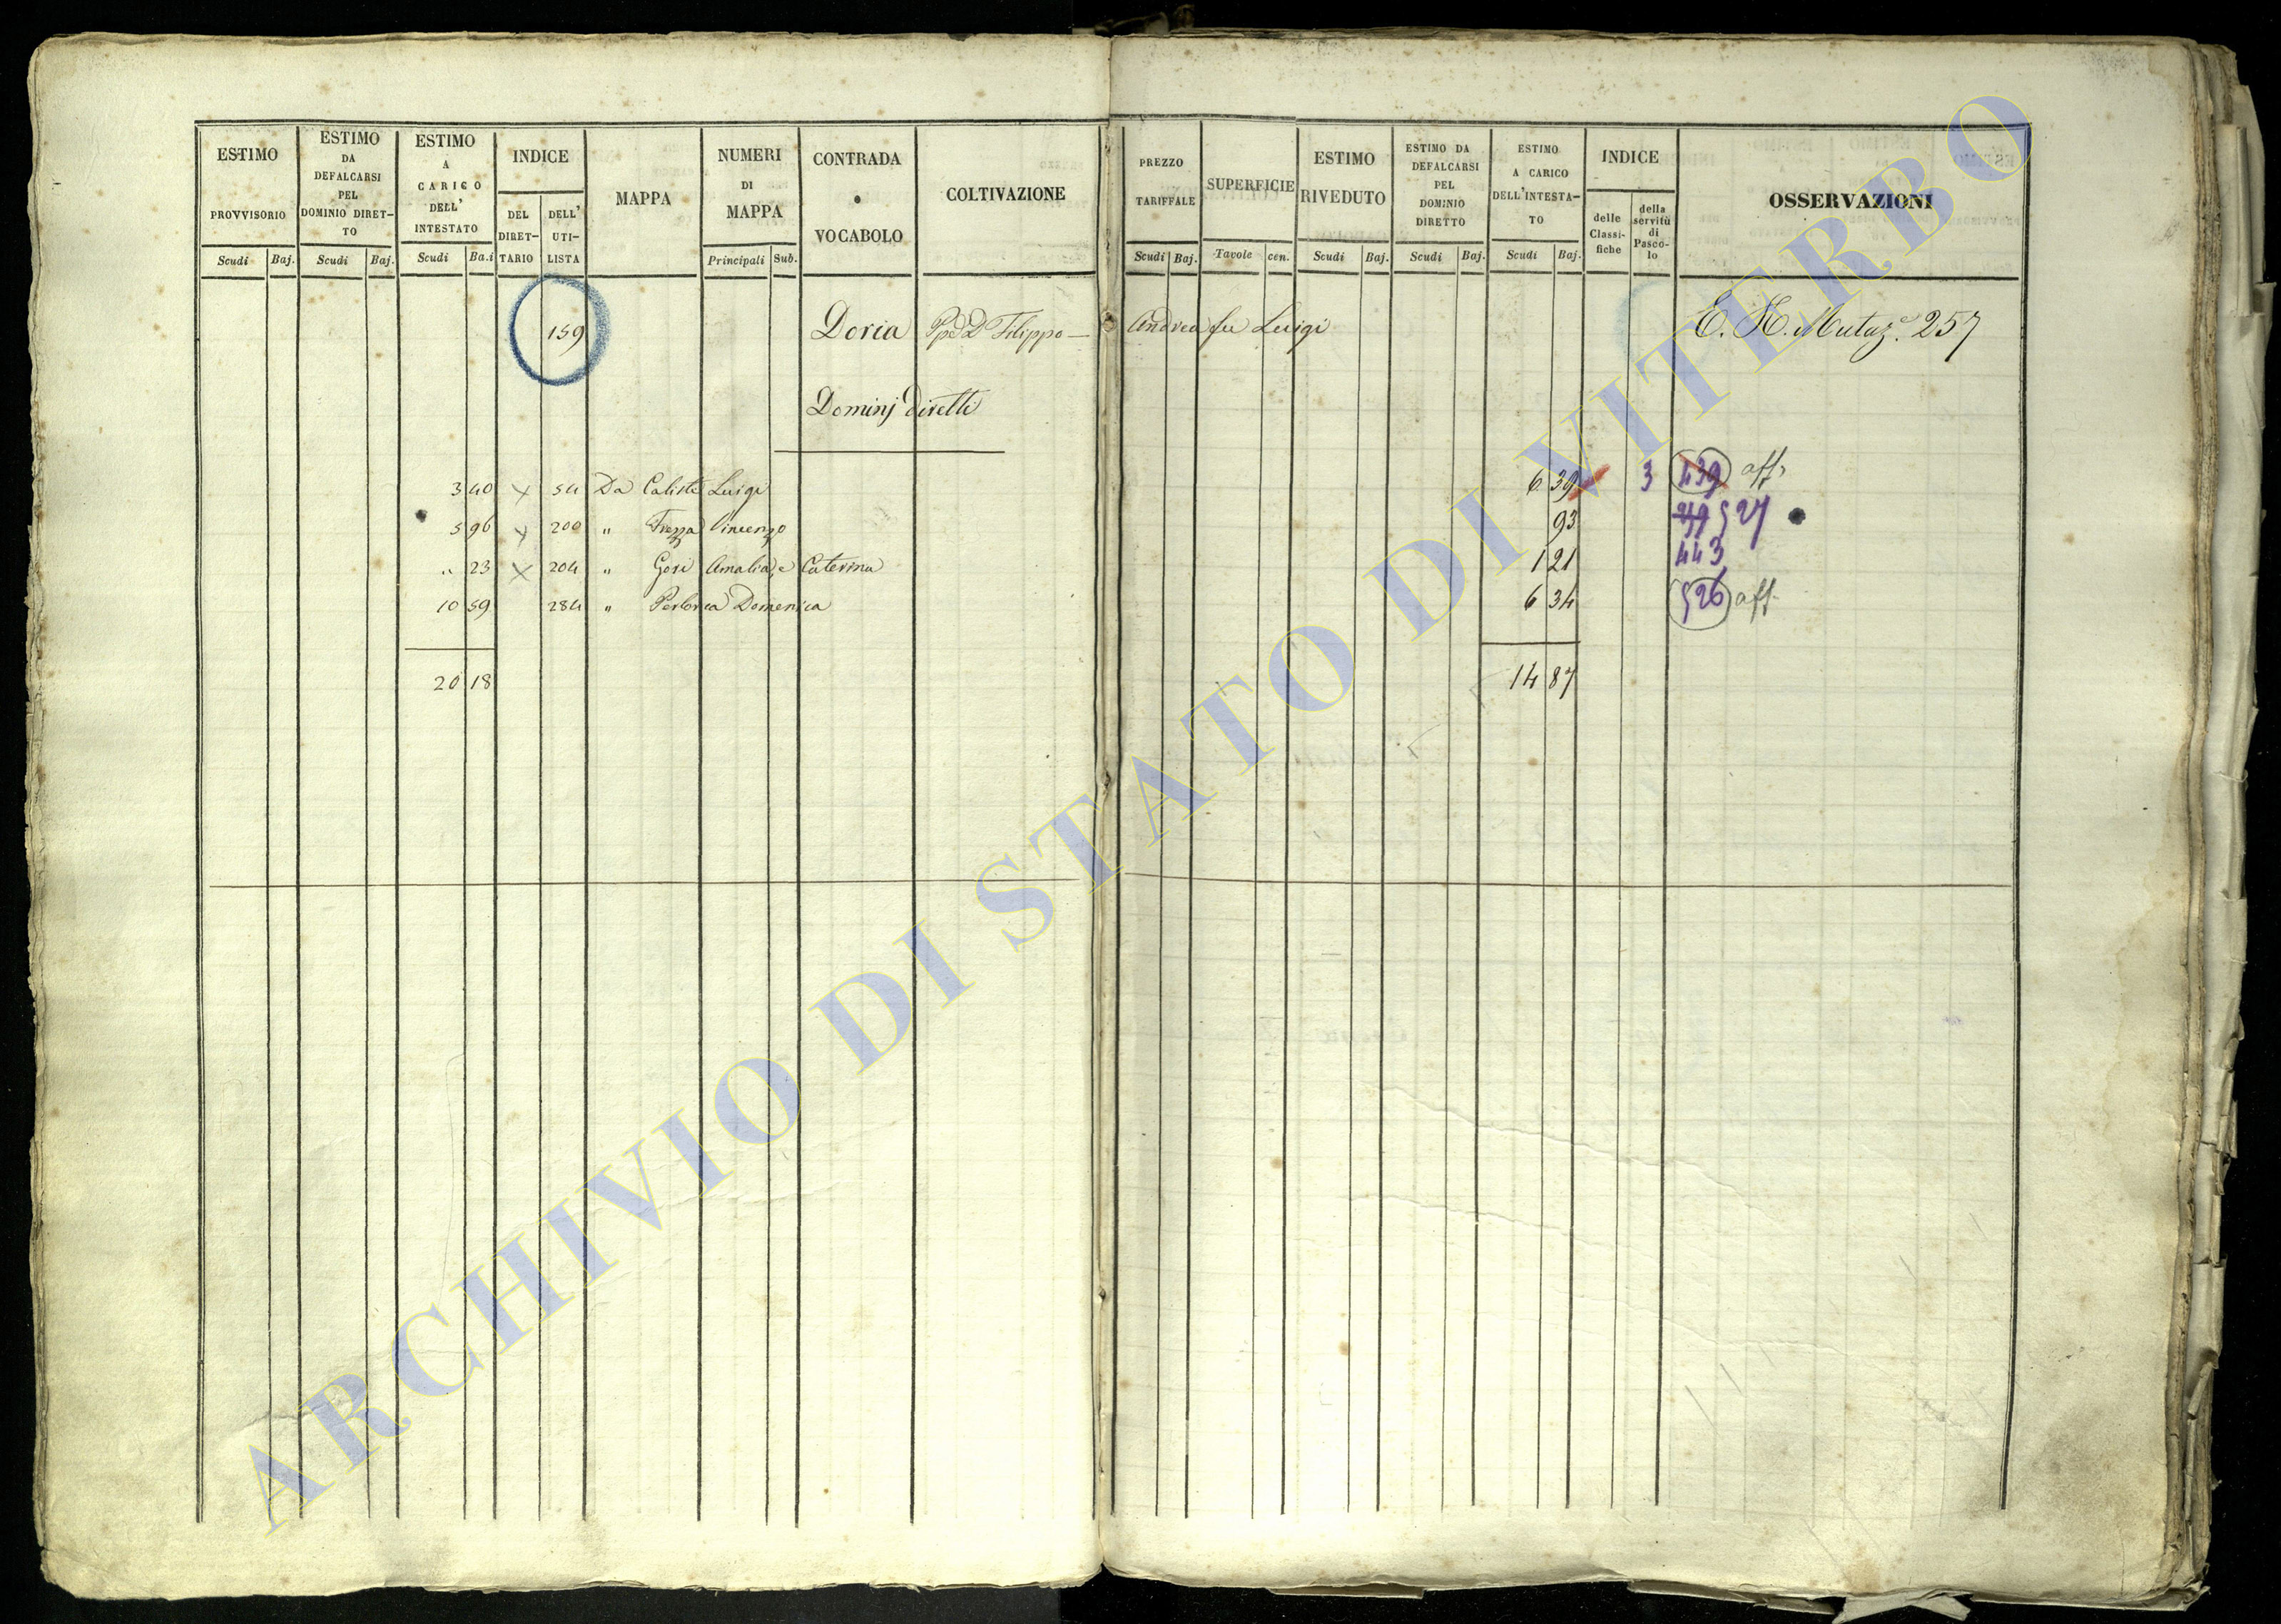 ESTIMO PROVVISORIO Scudi Baj.
ESTIMO DA DEFALCARSI PEL DOMINIO DIRETTO Scudi Baj.
ESTIMO A CARICO DELL' INTESTATO Scudi Ba.i
INDICE DEL DIRETTARIO DELL' UTILISTA
MAPPA
NUMERI DI MAPPA Principali Sub.
CONTRADA o VOCABOLO
COLTIVAZIONE
PREZZO TARIFFALE Scudi Baj.
SUPERFICIE Tavole cen.
ESTIMO RIVEDUTO Scudi Baj.
ESTIMO DA DEFALCARSI PEL DOMINIO DIRETTO Scudi Baj.
ESTIMO A CARICO DELL'INTESTATO Scudi Baj.
INDICE delle Classifiche della servitù di Pascolo
OSSERVAZIONI
159 Doria Ppe D Filippo — Andrea fu Luigi E. H. Mutaz.e 257
Dominj diretti
3 40 × 54 Da Calisti Luigi 6 39 3 439 aff.
5 96 × 200 " Frezza Vincenzo 93 527
" 23 × 204 " Gori Amalia, e Caterina 1 21 443
10 59 284 " Domenica 6 34 526 aff.
20 18 14 87
ARCHIVIO DI STATO DI VITERBO